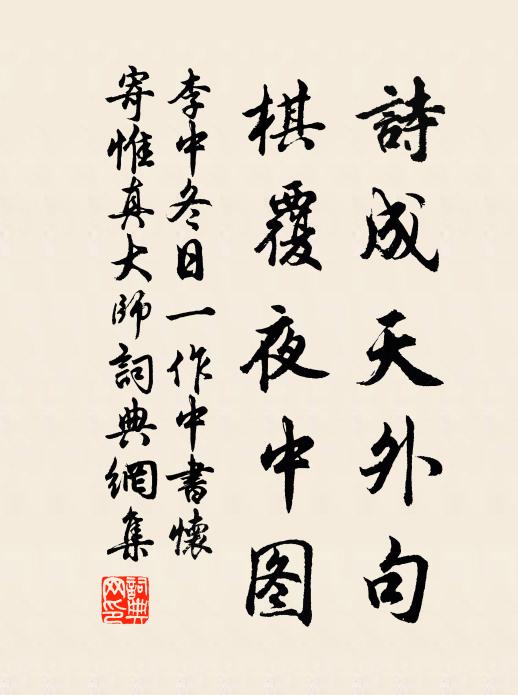 詩成天外句
棋覆夜中图
李中冬日一作中書懷
寄惟真大師詞典網集
詞典网印